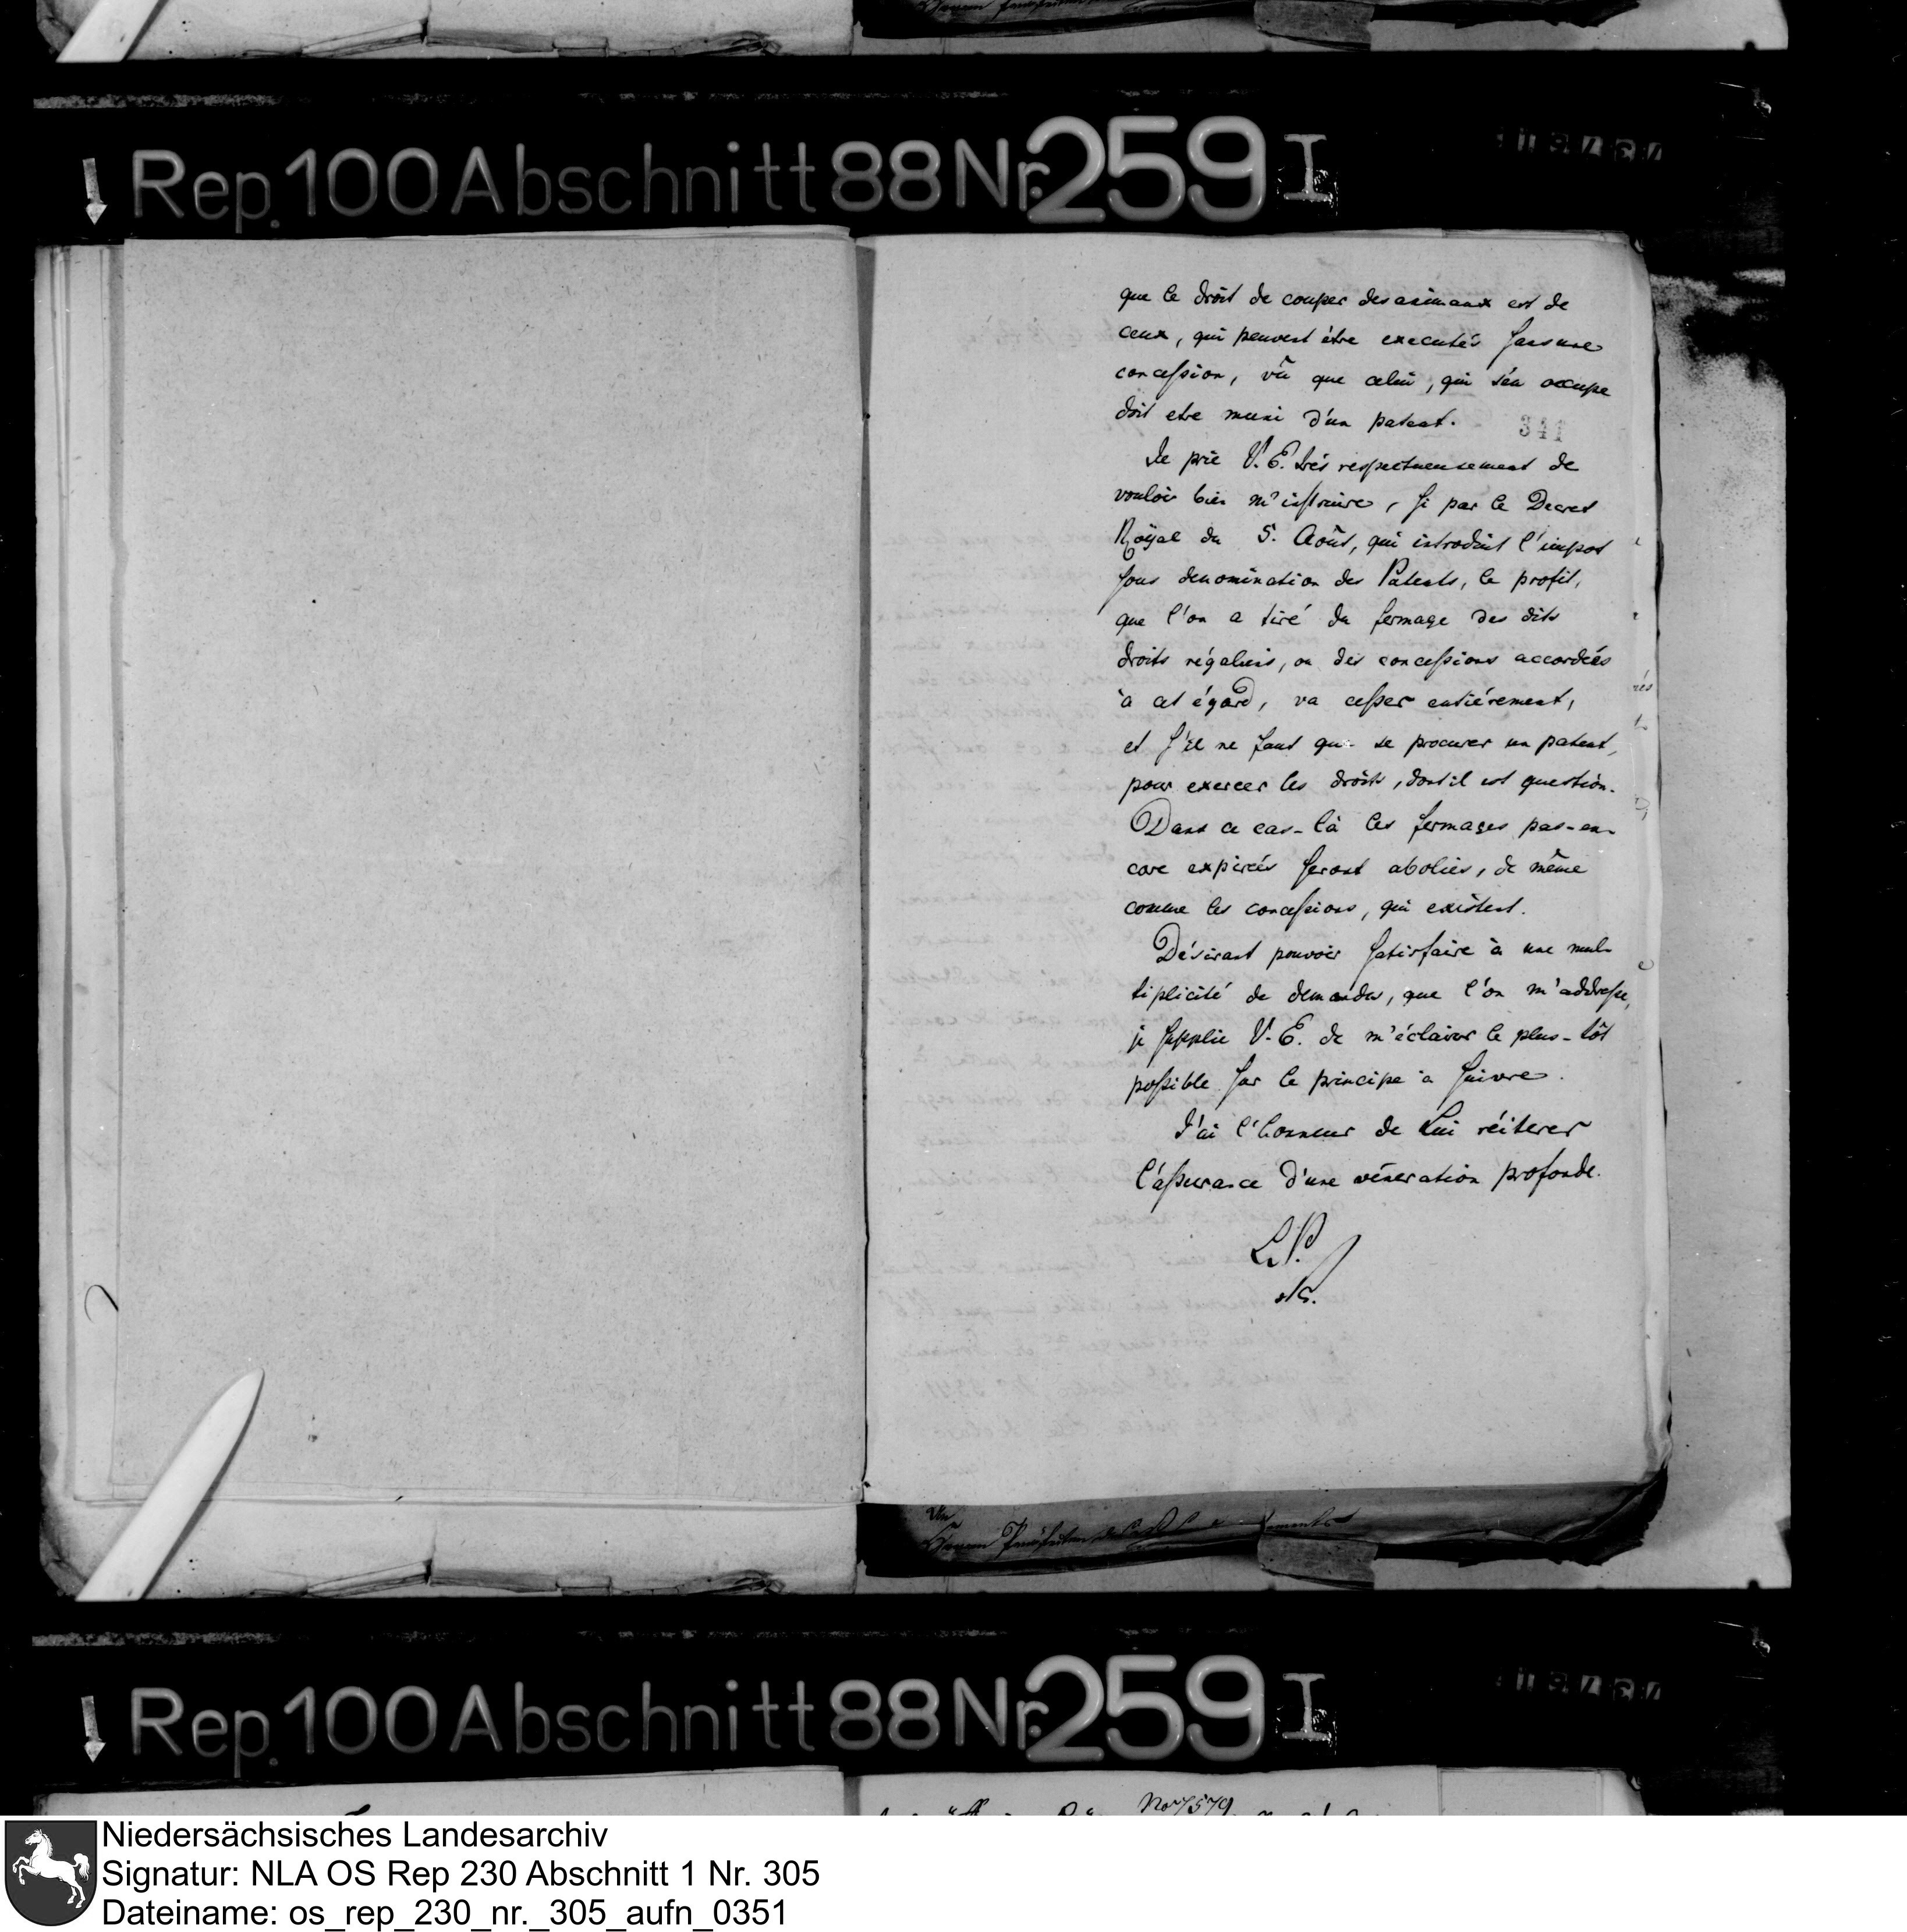 Rep. 100 Abschnitt 88 Nr. 259 I
que le droit de couper des animaux est de
ceux, qui peuvent être executés sans une
concession, vû que celui, qui s'en occupe
doit etre muni d'un patent.
341
Je prie V. E. trés respectueusement de
vouloir bien m'instruire, si par le Decret
Roÿal du 5. Août, qui introduit l'impot
sous denomination des Patents, le profit,
que l'on a tiré du fermage des dits
droits régaliens, ou des concessions accordées
à cet égard, va cesser entiérement,
et s'il ne faut que se procurer un patent,
pour exercer les droits, dont il est question.
Dans ce cas-là les fermages pas-en-
core expirés seront abolies, de même
comme les concessions, qui existent.
Désirant pouvoir satisfaire à une mul-
tiplicité de demandes, que l'on m'addresse,
je supplie V. E. de m'éclairer le plus-tôt
possible sur le principe à suivre.
J'ai l'honneur de Lui réiterer
l'assurance d'une véneration profonde.
L. P.
Rep. 100 Abschnitt 88 Nr. 259 I
No 7579
Niedersächsisches Landesarchiv
Signatur: NLA OS Rep 230 Abschnitt 1 Nr. 305
Dateiname: os_rep_230_nr._305_aufn_0351